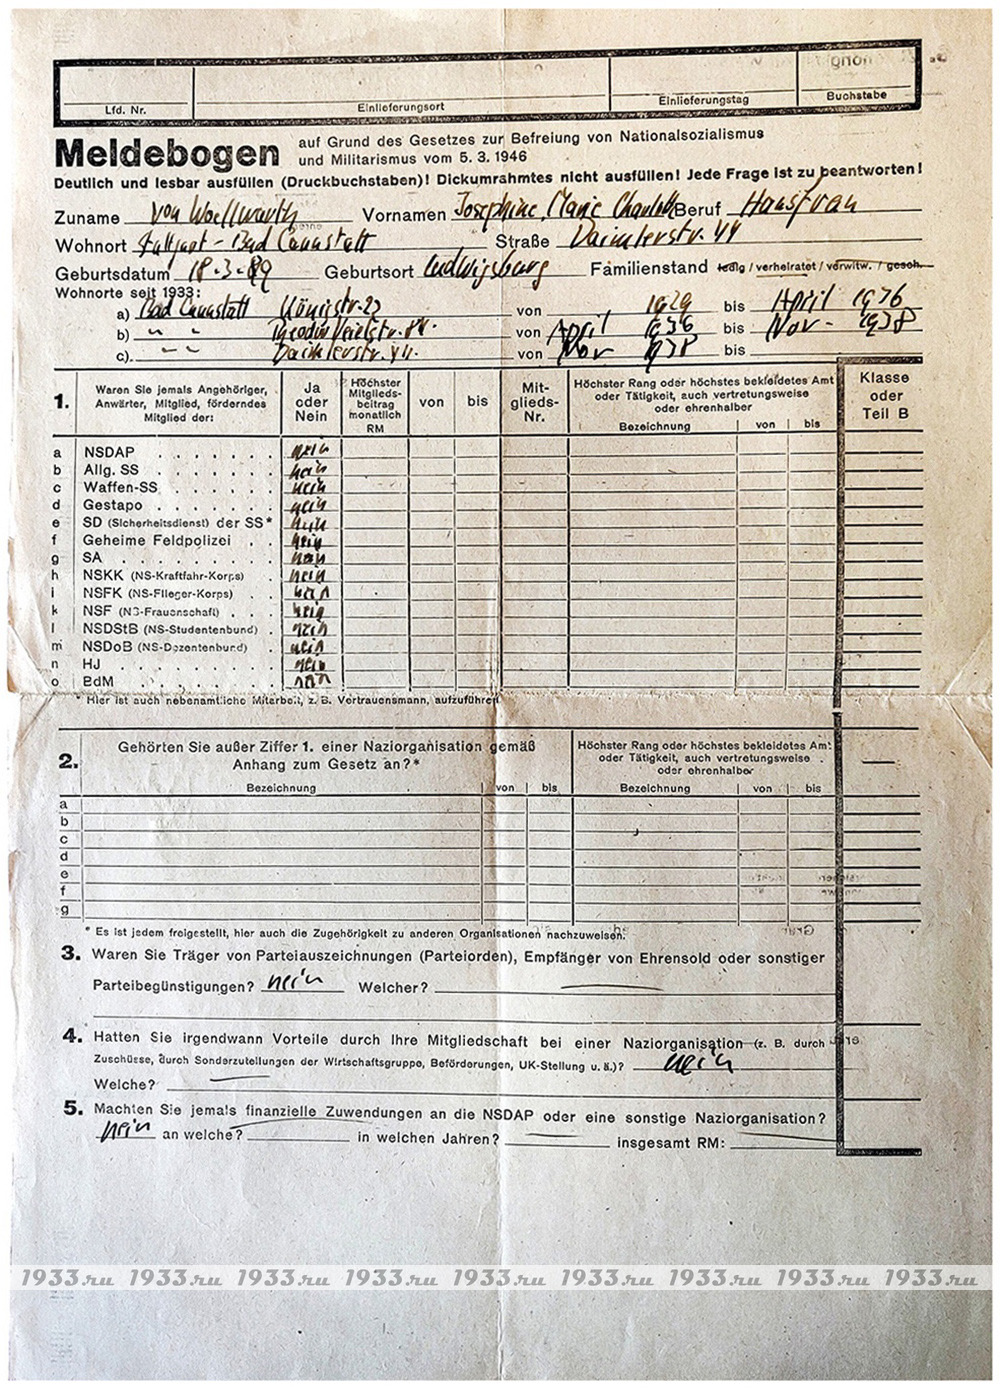 Lfd. Nr. Einlieferungsort Einlieferungstag Buchstabe
Meldebogen auf Grund des Gesetzes zur Befreiung von Nationalsozialismus
und Militarismus vom 5. 3. 1946
Deutlich und lesbar ausfüllen (Druckbuchstaben)! Dickumrahmtes nicht ausfüllen! Jede Frage ist zu beantworten!
Zuname von Woellwarth Vornamen Josephine, Marie Charlott Beruf Hausfrau
Wohnort Stuttgart - Bad Cannstatt Straße Daimlerstr. 44
Geburtsdatum 18.3.89 Geburtsort Ludwigsburg Familienstand ledig / verheiratet / verwitw. / gesch.
Wohnorte seit 1933:
a) Bad Cannstatt Königstr. 23 von 1929 bis April 1936
b) " " von April 1936 bis Nov - 1938
c) " " Daimlerstr. 44. von Nov 1938 bis
1. Waren Sie jemals Angehöriger, Anwärter, Mitglied, förderndes Mitglied der: Ja oder Nein Höchster Mitglieds-beitrag monatlich RM von bis Mit-glieds-Nr. Höchster Rang oder höchstes bekleidetes Amt oder Tätigkeit, auch vertretungsweise oder ehrenhalber Klasse oder Teil B
Bezeichnung von bis
a NSDAP nein
b Allg. SS nein
c Waffen-SS nein
d Gestapo nein
e SD (Sicherheitsdienst) der SS* nein
f Geheime Feldpolizei nein
g SA nein
h NSKK (NS-Kraftfahr-Korps) nein
i NSFK (NS-Flieger-Korps) nein
k NSF (NS-Frauenschaft) nein
l NSDStB (NS-Studentenbund) nein
m NSDoB (NS-Dozentenbund) nein
n HJ nein
o BdM nein
* Hier ist auch nebenamtliche Mitarbeit, z. B. Vertrauensmann, aufzuführen
2. Gehörten Sie außer Ziffer 1. einer Naziorganisation gemäß Höchster Rang oder höchstes bekleidetes Amt
Anhang zum Gesetz an?* oder Tätigkeit, auch vertretungsweise
oder ehrenhalber
Bezeichnung von bis Bezeichnung von bis
a
b
c
d
e
f
g
* Es ist jedem freigestellt, hier auch die Zugehörigkeit zu anderen Organisationen nachzuweisen.
3. Waren Sie Träger von Parteiauszeichnungen (Parteiorden), Empfänger von Ehrensold oder sonstiger
Parteibegünstigungen? nein Welcher?
4. Hatten Sie irgendwann Vorteile durch Ihre Mitgliedschaft bei einer Naziorganisation (z. B. durch
Zuschüsse, durch Sonderzuteilungen der Wirtschaftsgruppe, Beförderungen, UK-Stellung u. ä.)? nein
Welche?
5. Machten Sie jemals finanzielle Zuwendungen an die NSDAP oder eine sonstige Naziorganisation?
nein an welche? in welchen Jahren? insgesamt RM:
1933.ru 1933.ru 1933.ru 1933.ru 1933.ru 1933.ru 1933.ru 1933.ru 1933.ru